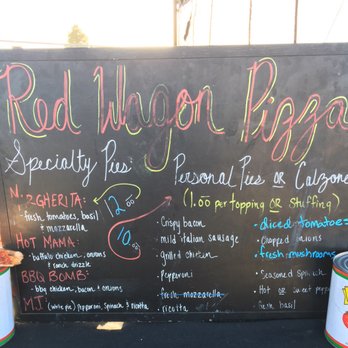 Red Wagon Pizza
Specialty Pies:
MARGHERITA:
- fresh tomatoes, basil
& mozzarella
HOT MAMA:
- buffalo chicken, onions
& ranch drizzle
BBQ BOMB:
- bbq chicken, bacon & onions
M.J. (white pie) pepperoni, spinach & ricotta
12.00
10.00
Personal Pies OR Calzone
(1.00 per topping or stuffing)
• Crispy bacon
• mild italian sausage
• Grilled chicken
• Pepperoni
• fresh mozzarella
• ricotta
• diced tomatoes
• Chopped onions
• fresh mushrooms
• Seasoned spinach
• Hot or sweet
• fresh basil